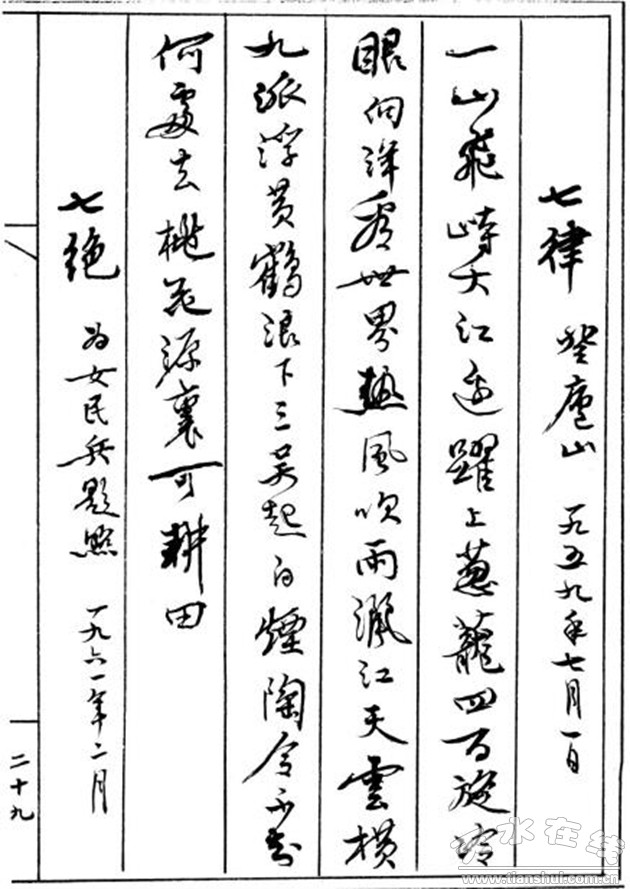 七律 登廬山 一九五九年七月一日
一山飛峙大江边躍上葱蘢四百旋冷
眼向洋看世界熱風吹雨灑江天雲横
九派浮黄鶴浪下三吴起白煙陶令不知
何處去桃花源裏可耕田
七绝 为女民兵題照 一九六一年二月
二十九
天水在线
www.tianshui.com.cn